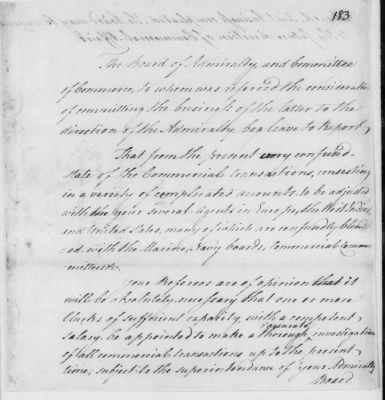 183
The Board of Admiralty, and Committee
of Commerce, to whom was referred the consideration
of committing the business of the latter to the
direction of the Admiralty, beg leave to Report,
That from the present very confused
state of the Commercial transactions, consisting
in a variety of complicated accounts, to be adjusted
with your several Agents in Europe, the West Indies,
and United States, many of which are confusedly blend
=ed with the Marine, Navy boards, Commercial Com
mittees &c.
Your Referees are of opinion that it
will be absolutely necessary that one or more
Clerks of sufficient capacity, with a competent
salary be appointed to make a thorough accurate investigation
of all commercial transactions up to the present
time, subject to the superintendance of your Admiralty
Board